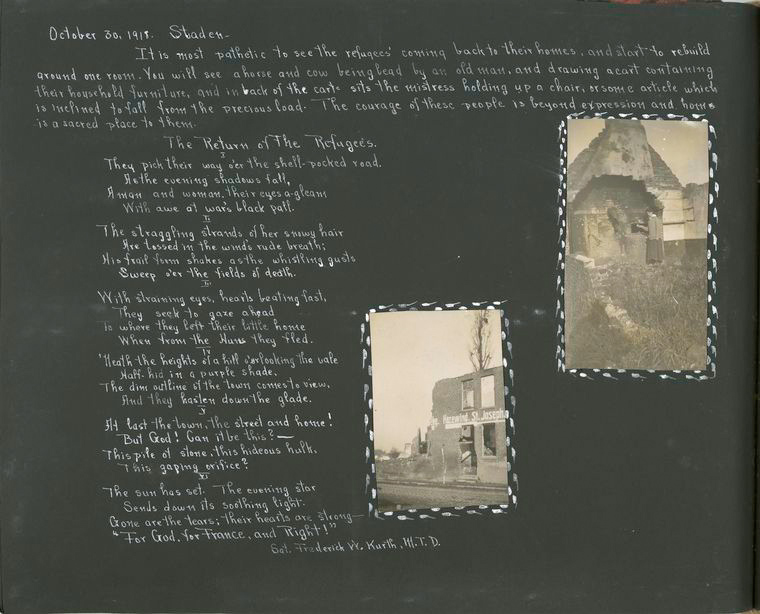 October 30, 1918. Staden-
It is most pathetic to see the refugees' coming back to their homes, and start to rebuild
around one room. You will see a horse and cow being lead by an old man, and drawing a cart containing
their household furniture, and in back of the cart sits the mistress holding up a chair, or some article which
is inclined to fall from the precious load. The courage of these people is beyond expression and home
is a sacred place to them.
The Return of The Refugees.
I
They pick their way o'er the shell-pocked road.
As the evening shadows fall,
A man and woman, their eyes a-gleam
With awe at war's black pall.
II
The straggling strands of her snowy hair
Are tossed in the wind's rude breath;
His frail form shakes as the whistling gusts
Sweep o'er the fields of death.
III
With straining eyes, hearts beating fast,
They seek to gaze ahead
To where they left their little home
When from the Huns they fled.
IV
'Neath the heights of a hill o'erlooking the vale
Half-hid in a purple shade,
The dim outline of the town comes to view,
And they hasten down the glade.
V
At last the town, the street and home!
But God! Can it be this?—
This pile of stone, this hideous hulk,
This gaping orifice?
VI
The sun has set. The evening star
Sends down its soothing light.
Gone are the tears; their hearts are strong—
"For God, for France, and Right!"
Sgt. Frederick W. Kurth, M.T.D.
Herberg St. Joseph